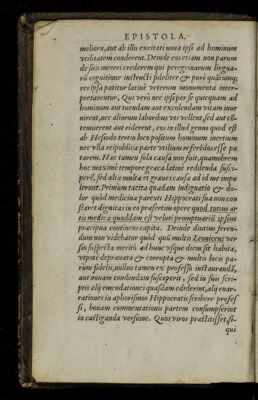 EPISTOLA.
meliora, aut ab illis excitati noua ipsi ad hominum
vtilitatem conderent. Deinde eos etiam non parum
de suis mereri crederem qui peregrinarum lingua-
rū cognitione instructi fideliter & purè quātumq́;
res ipsa patitur latinè veterum monumenta inter-
pretarentur. Qui verò nec ipsi per se quicquam ad
hominum aut tuendam aut excolendam vitam inue
nirent, nec aliorum laboribus vti vellent, sed aut cō-
temnerent aut riderent, eos in illud genus quod est
ab Hesiodo tertio loco positum hominum inertium
nec vlla reipublicæ parte vtilium referēdos esse pu
tarem. Hæc tamen sola causa non fuit, quamobrem
hoc maximè tempore græca latinè reddenda susci-
perē, sed aliæ multæ et graues causæ ad id me impu
lerunt. Primùm tacita quadam indignatio & do-
lor quòd medicinæ parenti Hippocrati sua non con
staret dignitas in eo præsertim opere quod totius ar
tis medicæ quoddam est veluti promptuariū ipsius
præcipua continens capita. Deinde diutius feren-
dum non videbatur quòd quū multis Leoniceni ver
sio suspecta meritò ad hunc vsque diem sit habita,
vtpote deprauata & corrupta & multis locis pa-
rum fidelis, nullus tamen ex professo instaurandā,
aut nouam condendam susceperit, sed in suis scri-
ptis alij emendationes quasdam ediderint, alij enar-
rationes in aphorismos Hippocratis scribere profes
si, bonam commentationis partem consumpserint
in castiganda versione. Quos viros præstitisset, si-
qui